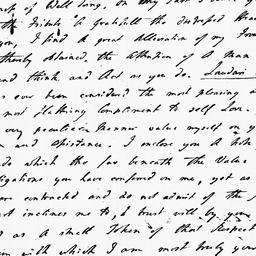 of Well doing, on my part I have
the Tribute & Gratefull the distressed Hea
you, I find a great Alleviation of my
thereby obtained the Attention of a Man
and think and Act as you do. Laudari
as ever been considered the most pleasing a
most flattering Compliment to self Love.
very peculiar Manner value myself on y
n and Assistance. I enclose you A
ds which the far beneath the Value
ligations you have conferred on me, yet as
are contracted and do not admit of the
nt inclines me to, I trust will by you
d as a small Token of that Respect
em with which I am most truly your